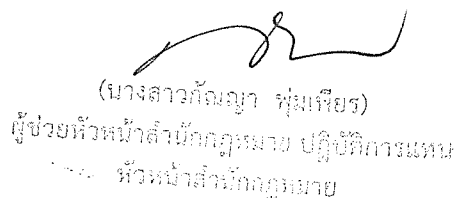 (นางสาวกัณญา พุ่มเพียร)
ผู้ช่วยหัวหน้าสำนักกฎหมาย ปฏิบัติการแทน
หัวหน้าสำนักกฎหมาย